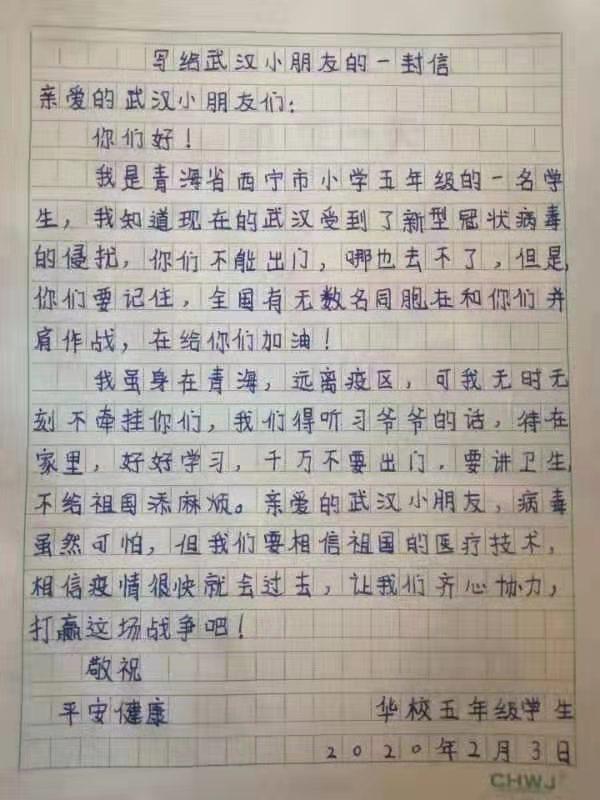 写给武汉小朋友的一封信
亲爱的武汉小朋友们：
你们好！
我是青海省西宁市小学五年级的一名学
生，我知道现在的武汉受到了新型冠状病毒
的侵扰，你们不能出门，哪也去不了，但是，
你们要记住，全国有无数名同胞在和你们并
肩作战，在给你们加油！
我虽身在青海，远离疫区，可我无时无
刻不牵挂你们，我们得听习爷爷的话，待在
家里，好好学习，千万不要出门，要讲卫生，
不给祖国添麻烦。亲爱的武汉小朋友，病毒
虽然可怕，但我们要相信祖国的医疗技术，
相信疫情很快就会过去，让我们齐心协力，
打赢这场战争吧！
敬祝
平安健康 华校五年级学生
2020年2月3日
CHWJ